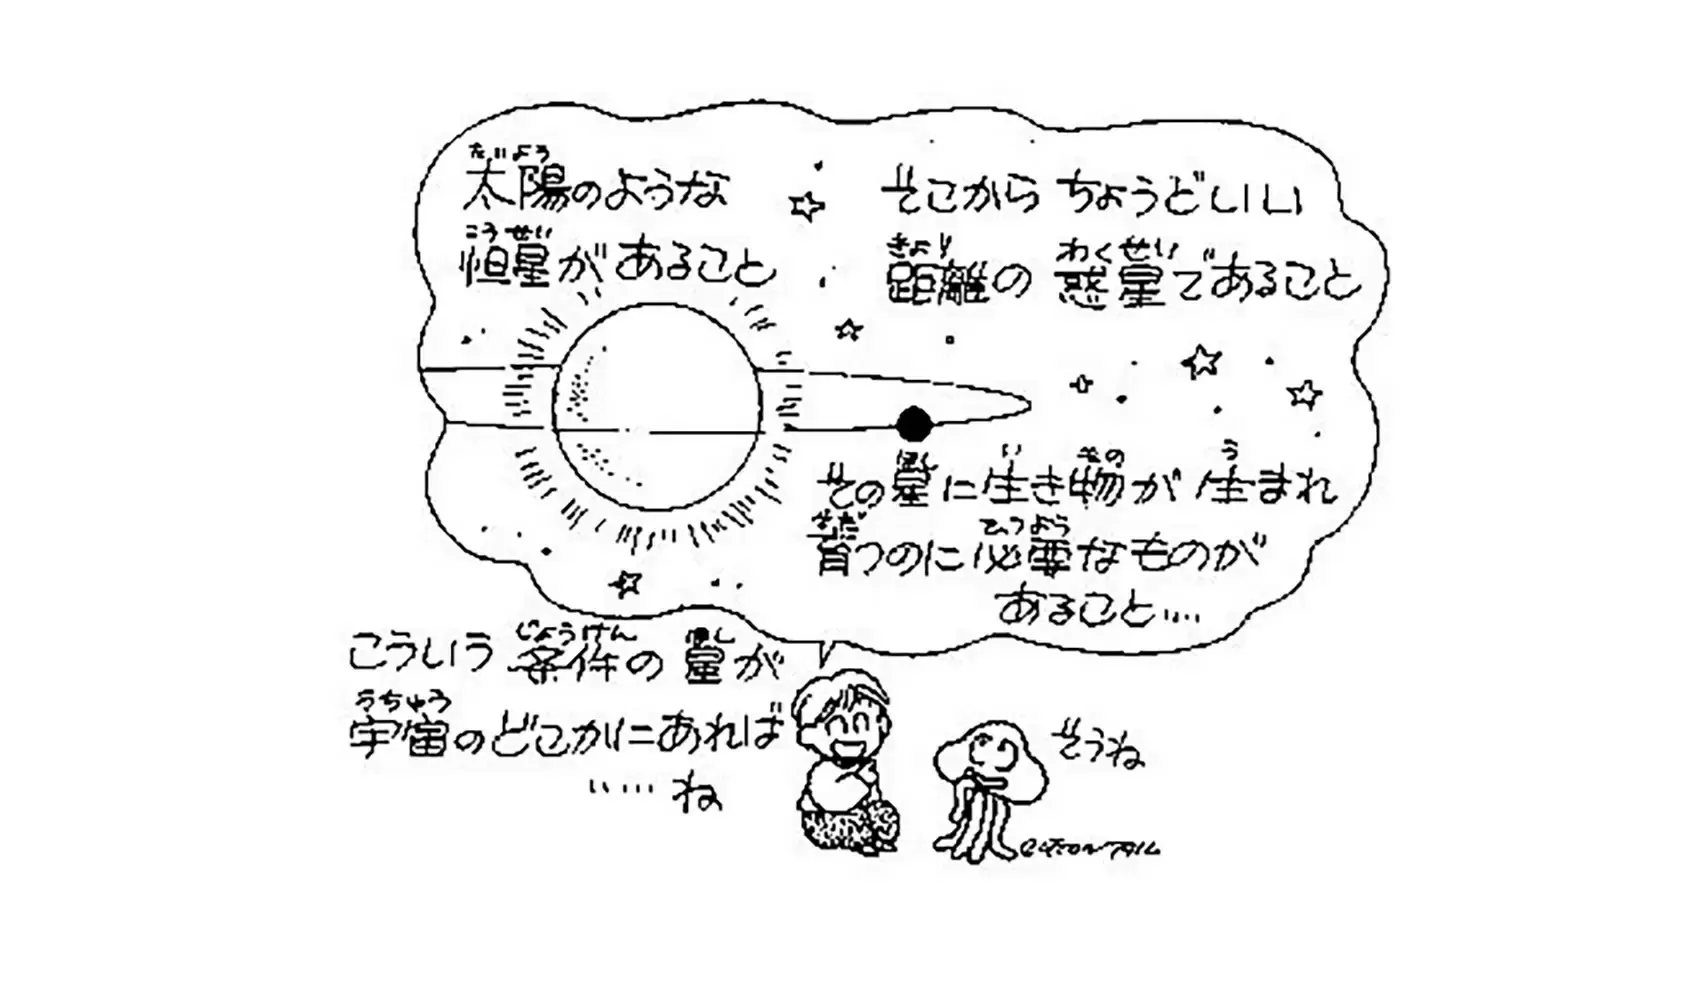 たいよう
太陽のような
こうせい
恒星があること
そこから ちょうどいい
きょり わくせい
距離の 惑星であること
ほし い もの う
その星に生き物が 生まれ
そだ ひつよう
育つのに必要なものが
あること‥‥
じょうけん ほし
こういう 条件の 星が
うちゅう
宇宙のどこかにあれば
‥‥‥ね
そうね